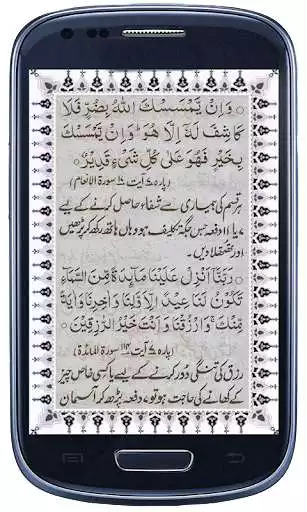 وَاِنْ يَّمْسَسْكَ اللّٰهُ بِضُرٍّ فَلَا
كَاشِفَ لَهٗۤ اِلَّا هُوَ ؕ وَاِنْ يَّمْسَسْكَ
بِخَيْرٍ فَهُوَ عَلٰى كُلِّ شَىْءٍ قَدِيْرٌ ○
(پارہ ۷ آیت ۱۷ سورۃ الانعام)
ہر قسم کی بیماری سے شفاء حاصل کرنے کے لیے
۷ یا ۱۱ دفعہ جس جگہ تکلیف ہو وہاں ہاتھ رکھ کر پڑھیں
اور تھتھکلا دیں۔
○ رَبَّنَاۤ اَنْزِلْ عَلَيْنَا مَآئِدَةً مِّنَ السَّمَآءِ
تَكُوْنُ لَنَا عِيْدًا لِّاَوَّلِنَا وَاٰخِرِنَا وَاٰيَةً
مِّنْكَ ۚ وَارْزُقْنَا وَاَنْتَ خَيْرُ الرّٰزِقِيْنَ ○
(پارہ ۷ آیت ۱۱۴ سورۃ المائدۃ)
رزق کی تنگی دور کرنے کے لیے یا کسی خاص چیز
کے کھانے کی حاجت ہو تو ۷ دفعہ پڑھ کر آسمان